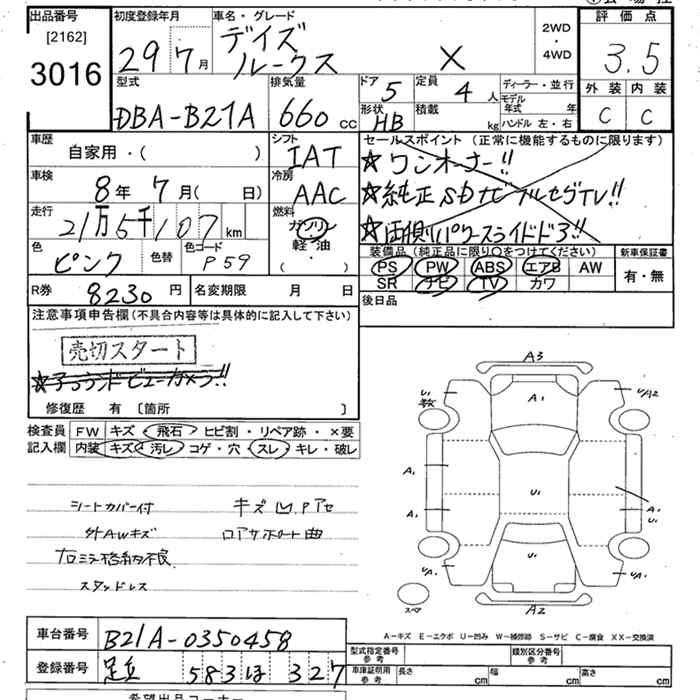 出品番号
[2162]
3016
初度登録年月
29 7月
車名・グレード
デイズ
ルークス
X
2WD
・
4WD
評価点
3.5
外装 内装
C C
型式
DBA-B21A
排気量
660 cc
ドア 5
定員 4 人
形状 HB
積載 kg
ディーラー・並行
モデル年式 年
ハンドル 左・右
車歴
自家用・( )
シフト
IAT
セールスポイント (正常に機能するものに限ります)
☆ワンオーナー!!
☆純正SDナビフルセグTV!!
☆両側パワースライドドア!!
車検
8年 7月( 日)
冷房
AAC
走行
21万5千107 km
燃料
ガソリン
軽油
( ・ )
色
ピンク
色替
色コード
P59
装備品 (純正品に限り○をつけてください)
PS PW ABS エアB AW
SR ナビ TV カワ
新車保証書
有・無
R券 8230円
名変期限 月 日
後日品
注意事項申告欄 (不具合内容等は具体的に記入して下さい)
売切スタート
修復歴 有 〔箇所 〕
検査員
記入欄
FW キズ・飛石・ヒビ割・リペア跡・×要
内装 キズ・汚レ・コゲ・穴・スレ・キレ・破レ
シートカバー付
キズ凹.Pアセ
外AWキズ
ロアサポート曲
右ミラー格納不良
スタッドレス
A3
U1
A1
U/A2
A1
A1
U1
A1
U1
U1
U/A1
U/A1
スペア
A2
A-キズ E-エクボ U-凹み W-補修跡 S-サビ C-腐食 XX-交換済
車台番号 B21A-0350458
登録番号 足立 583 ほ 327
型式指定番号
参考
類別区分番号
参考
車庫証明用
参考
長さ cm
幅 cm
高さ cm
希望出品コーナー